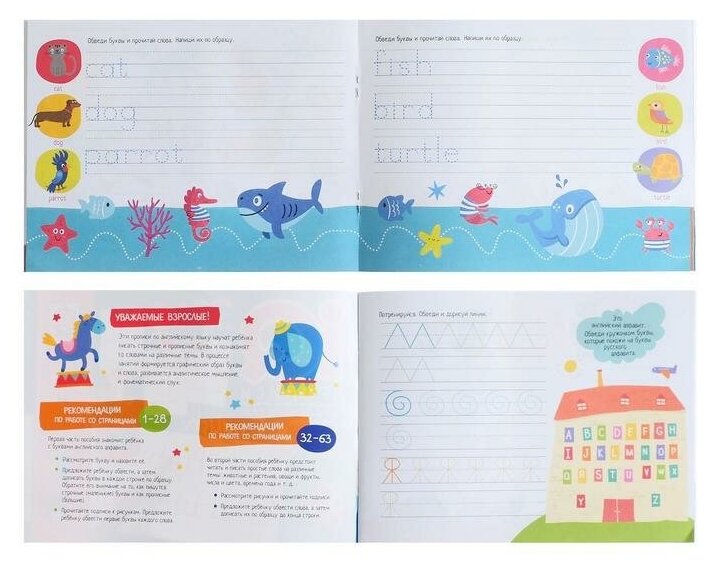 Обведи буквы и прочитай слова. Напиши их по образцу.
cat
cat
dog
dog
parrot
parrot
Обведи буквы и прочитай слова. Напиши их по образцу.
fish
fish
bird
bird
turtle
turtle
УВАЖАЕМЫЕ ВЗРОСЛЫЕ!
Эти прописи по английскому языку научат ребёнка
писать строчные и прописные буквы и познакомят
со словами на различные темы. В процессе
занятий формируется графический образ буквы
и слова, развивается аналитическое мышление
и фонематический слух.
РЕКОМЕНДАЦИИ
ПО РАБОТЕ СО СТРАНИЦАМИ 1-28
Первая часть пособия знакомит ребёнка
с буквами английского алфавита.
Рассмотрите букву и назовите её.
Предложите ребёнку обвести, а затем
дописать буквы в каждой строке по образцу.
Обратите его внимание на то, как пишутся
строчные (маленькие) буквы и как прописные
(большие).
Прочитайте подписи к рисункам. Предложите
ребёнку обвести первые буквы каждого слова.
РЕКОМЕНДАЦИИ
ПО РАБОТЕ СО СТРАНИЦАМИ 32-63
Во второй части пособия ребёнку предстоит
читать и писать простые слова на различные
темы: животные и растения, овощи и фрукты,
числа и цвета, времена года и т. д.
Рассмотрите рисунки и прочитайте подписи.
Предложите ребёнку обвести слова, а затем
дописать их по образцу до конца строки.
Потренируйся. Обведи и дорисуй линии.
Это
английский алфавит.
Обведи кружочком буквы,
которые похожи на буквы
русского
алфавита.
A B C D E F G H
I J K L M N O P
Q R S T U V W X
Y Z